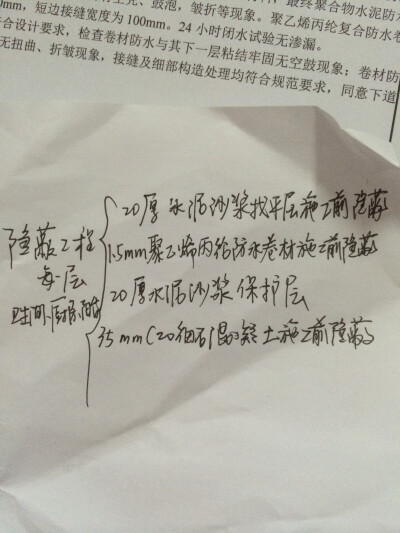 0mm，短边接缝宽度为100mm。24小时闭水试验无渗漏。
合设计要求，检查卷材防水与其下一层粘结牢固无空鼓现象；卷材防
无扭曲、折皱现象，接缝及细部构造处理均符合规范要求，同意下道
鼓泡，皱折等现象。聚乙烯丙纶复合防水卷
最终聚合物水泥防水
隐蔽工程
每一层
卫生间、厨房、阳台
20厚水泥沙浆找平层施工前隐蔽
1.5mm聚乙烯丙纶防水卷材施工前隐蔽
20厚水泥沙浆保护层
35mmC20细石混凝土施工前隐蔽